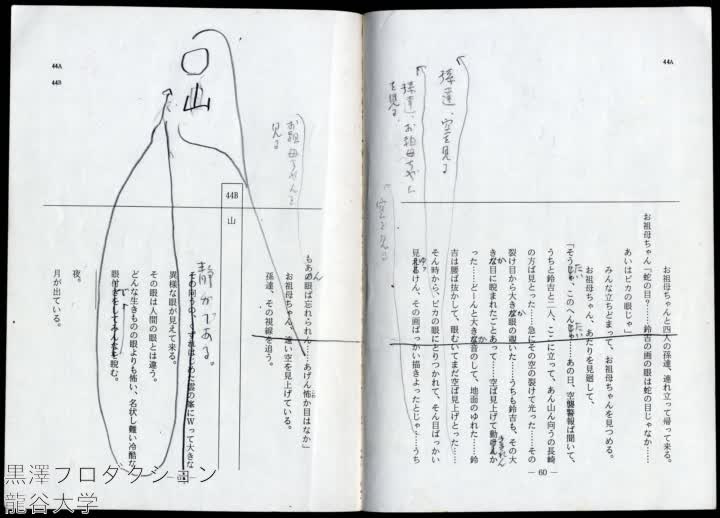 44A
孫達、空を見る
孫達、お祖母ちゃん
を見る
お祖母ちゃんと四人の孫達、連れ立って帰って来る。
お祖母ちゃん「蛇の目?……鈴吉の画の眼は蛇の目じゃなか……
あいはピカの眼じゃ」
みんな立ちどまって、お祖母ちゃんを見つめる。
お祖母ちゃん、あたりを見廻して、
「そうじゃ、このへんじゃ……あの日、空襲警報ば聞いて、
うちと鈴吉と二人、ここに立って、あん山ん向うの長崎
の方ば見とった……急にその空の裂けて光った……その
裂け目から大きな眼の覗いた……うちも鈴吉も、その大
きな目に睨まれたごとあって……空ば見上げて動
った……どーんと大きな音のして、地面のゆれた……鈴
吉は腰ば抜かして、眼むいてまだ空ば見上げとった……
そん時から、ピカの眼にとりつかれて、そん目ばっかい
見えるけん、その画ばっかい描きよったとじゃ……うち
— 60 —
44A
44B
山
お祖母ちゃんを
見る
もあの眼ば忘れられん……あげん怖か目はなか」
お祖母ちゃん、遠い空を見上げている。
孫達、その視線を追う。
44B
山
静かである。
その向うの、くずれはじめた雲の峯にＷって大きな
異様な眼が見えて来る。
その眼は人間の眼とは違う。
どんな生きものの眼よりも怖い、名状し難い冷酷な
眼付きをしてみんなを睨む。
夜。
月が出ている。
黒澤プロダクション
龍谷大学